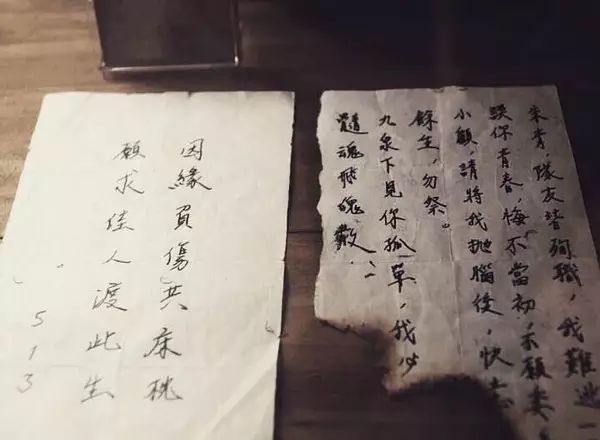 朱青，隊友皆殉職，我難逃一
誤你青春，悔不當初，願
小顧，請將我拋腦後，快
餘生，勿祭。
九泉下見你孤單，我必
魂飛魄散
因緣負傷共床桃
願求佳人渡此生
513